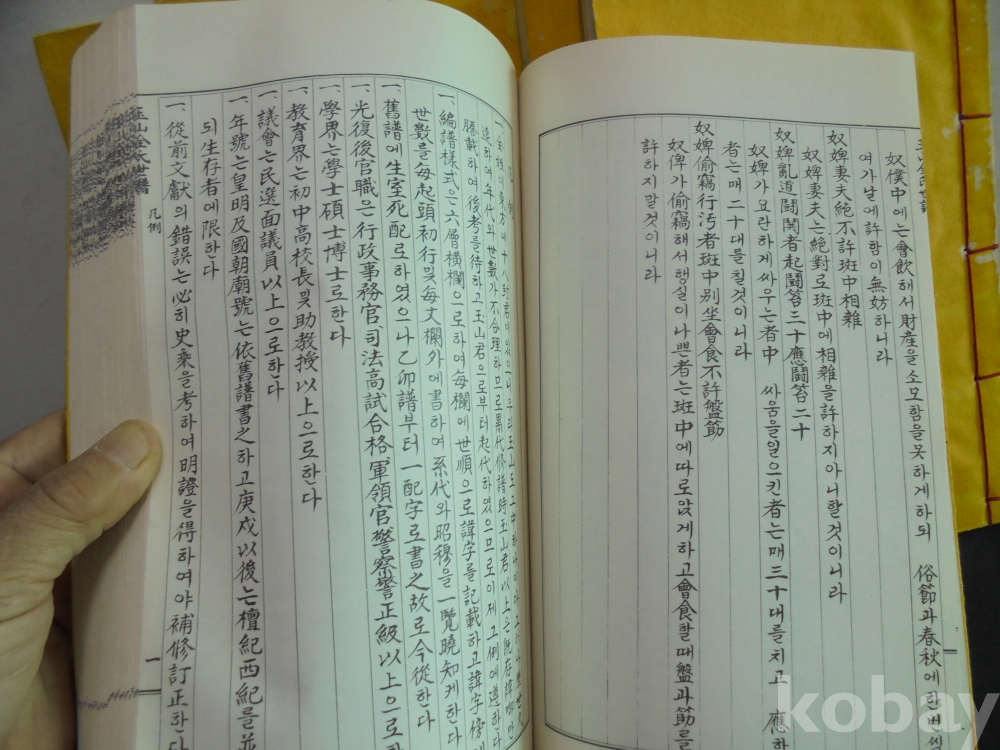 奴僕中에는會飮해서財産을소모함을못하게하되 俗節과春秋에한번씩
여가날에許함이無妨하니라
奴婢妻夫絶不許班中相雜
奴婢妻夫는絶對로班中에相雜을許하지아니할것이니라
奴婢亂道鬪鬨者起鬪笞三十應鬪笞二十
奴婢가요란하게싸우는者中 싸움을일으킨者는매三十대를치고 應하
者는매二十대를칠것이니라
奴婢偷竊行汚者班中別坐會食不許盤筯
奴婢가偷竊해서행실이나쁜者는班中에따로앉게하고會食할때盤과筯를
許하지말것이니라
凡例
遠하여年代와世數가不合理하므로累代修譜時玉山君以上은
謄載하여後考를待하고玉山君으로부터起代하였으므로이제그例에遵하다
一、編譜樣式은六層橫欄으로하여每欄에世順으로諱字를記載하고諱字傍
世數를每起頭初行및每丈欄外에書하여系代와昭穆을一覽曉知케한다
一、舊譜에生室死配로하였으나乙卯譜부터一配字로書之故로今從한다
一、光復後官職은行政事務官司法高試合格軍領官警察警正級以上으로한
一、學界는學士碩士博士로한다
一、敎育界는初中高校長및助敎授以上으로한다
一、議會는民選面議員以上으로한다
一、年號는皇明及國朝廟號는依舊譜書之하고庚戌以後는檀紀西紀를並
되生存者에限한다
一、從前文獻의錯誤는必히史乘을考하여明證을得하여야補修訂正한다
凡例
一
kobay